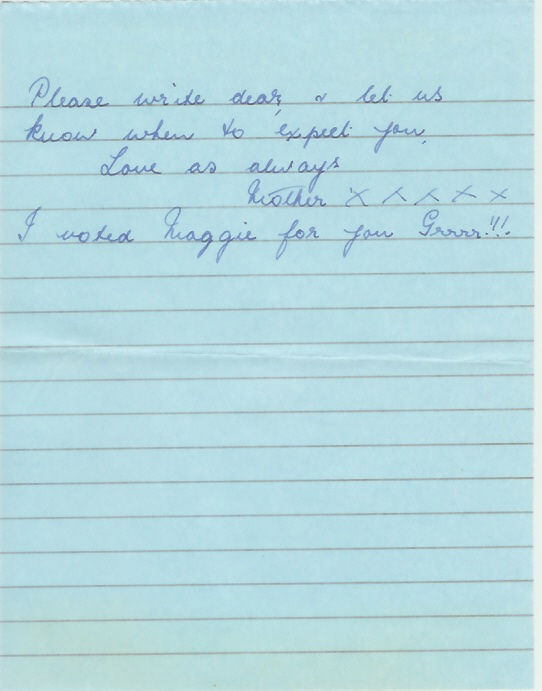 Please write dear, & let us
know when to expect you,
Love as always
Mother X X X X X
I voted Maggie for you Grrrr!!!